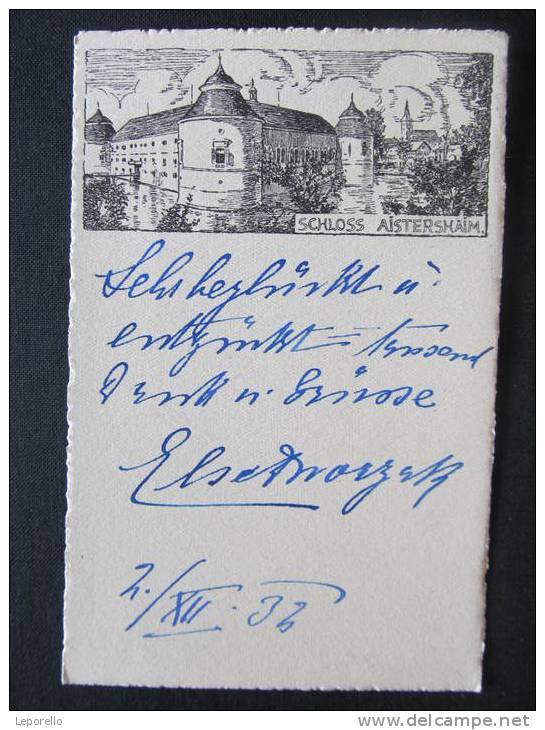 SCHLOSS AISTERSHAIM.
Sehr beglückt u.
entzückt = tausend
Dank u. Grüsse
Else
2./XII. 36
Leporello
www.delcampe.net